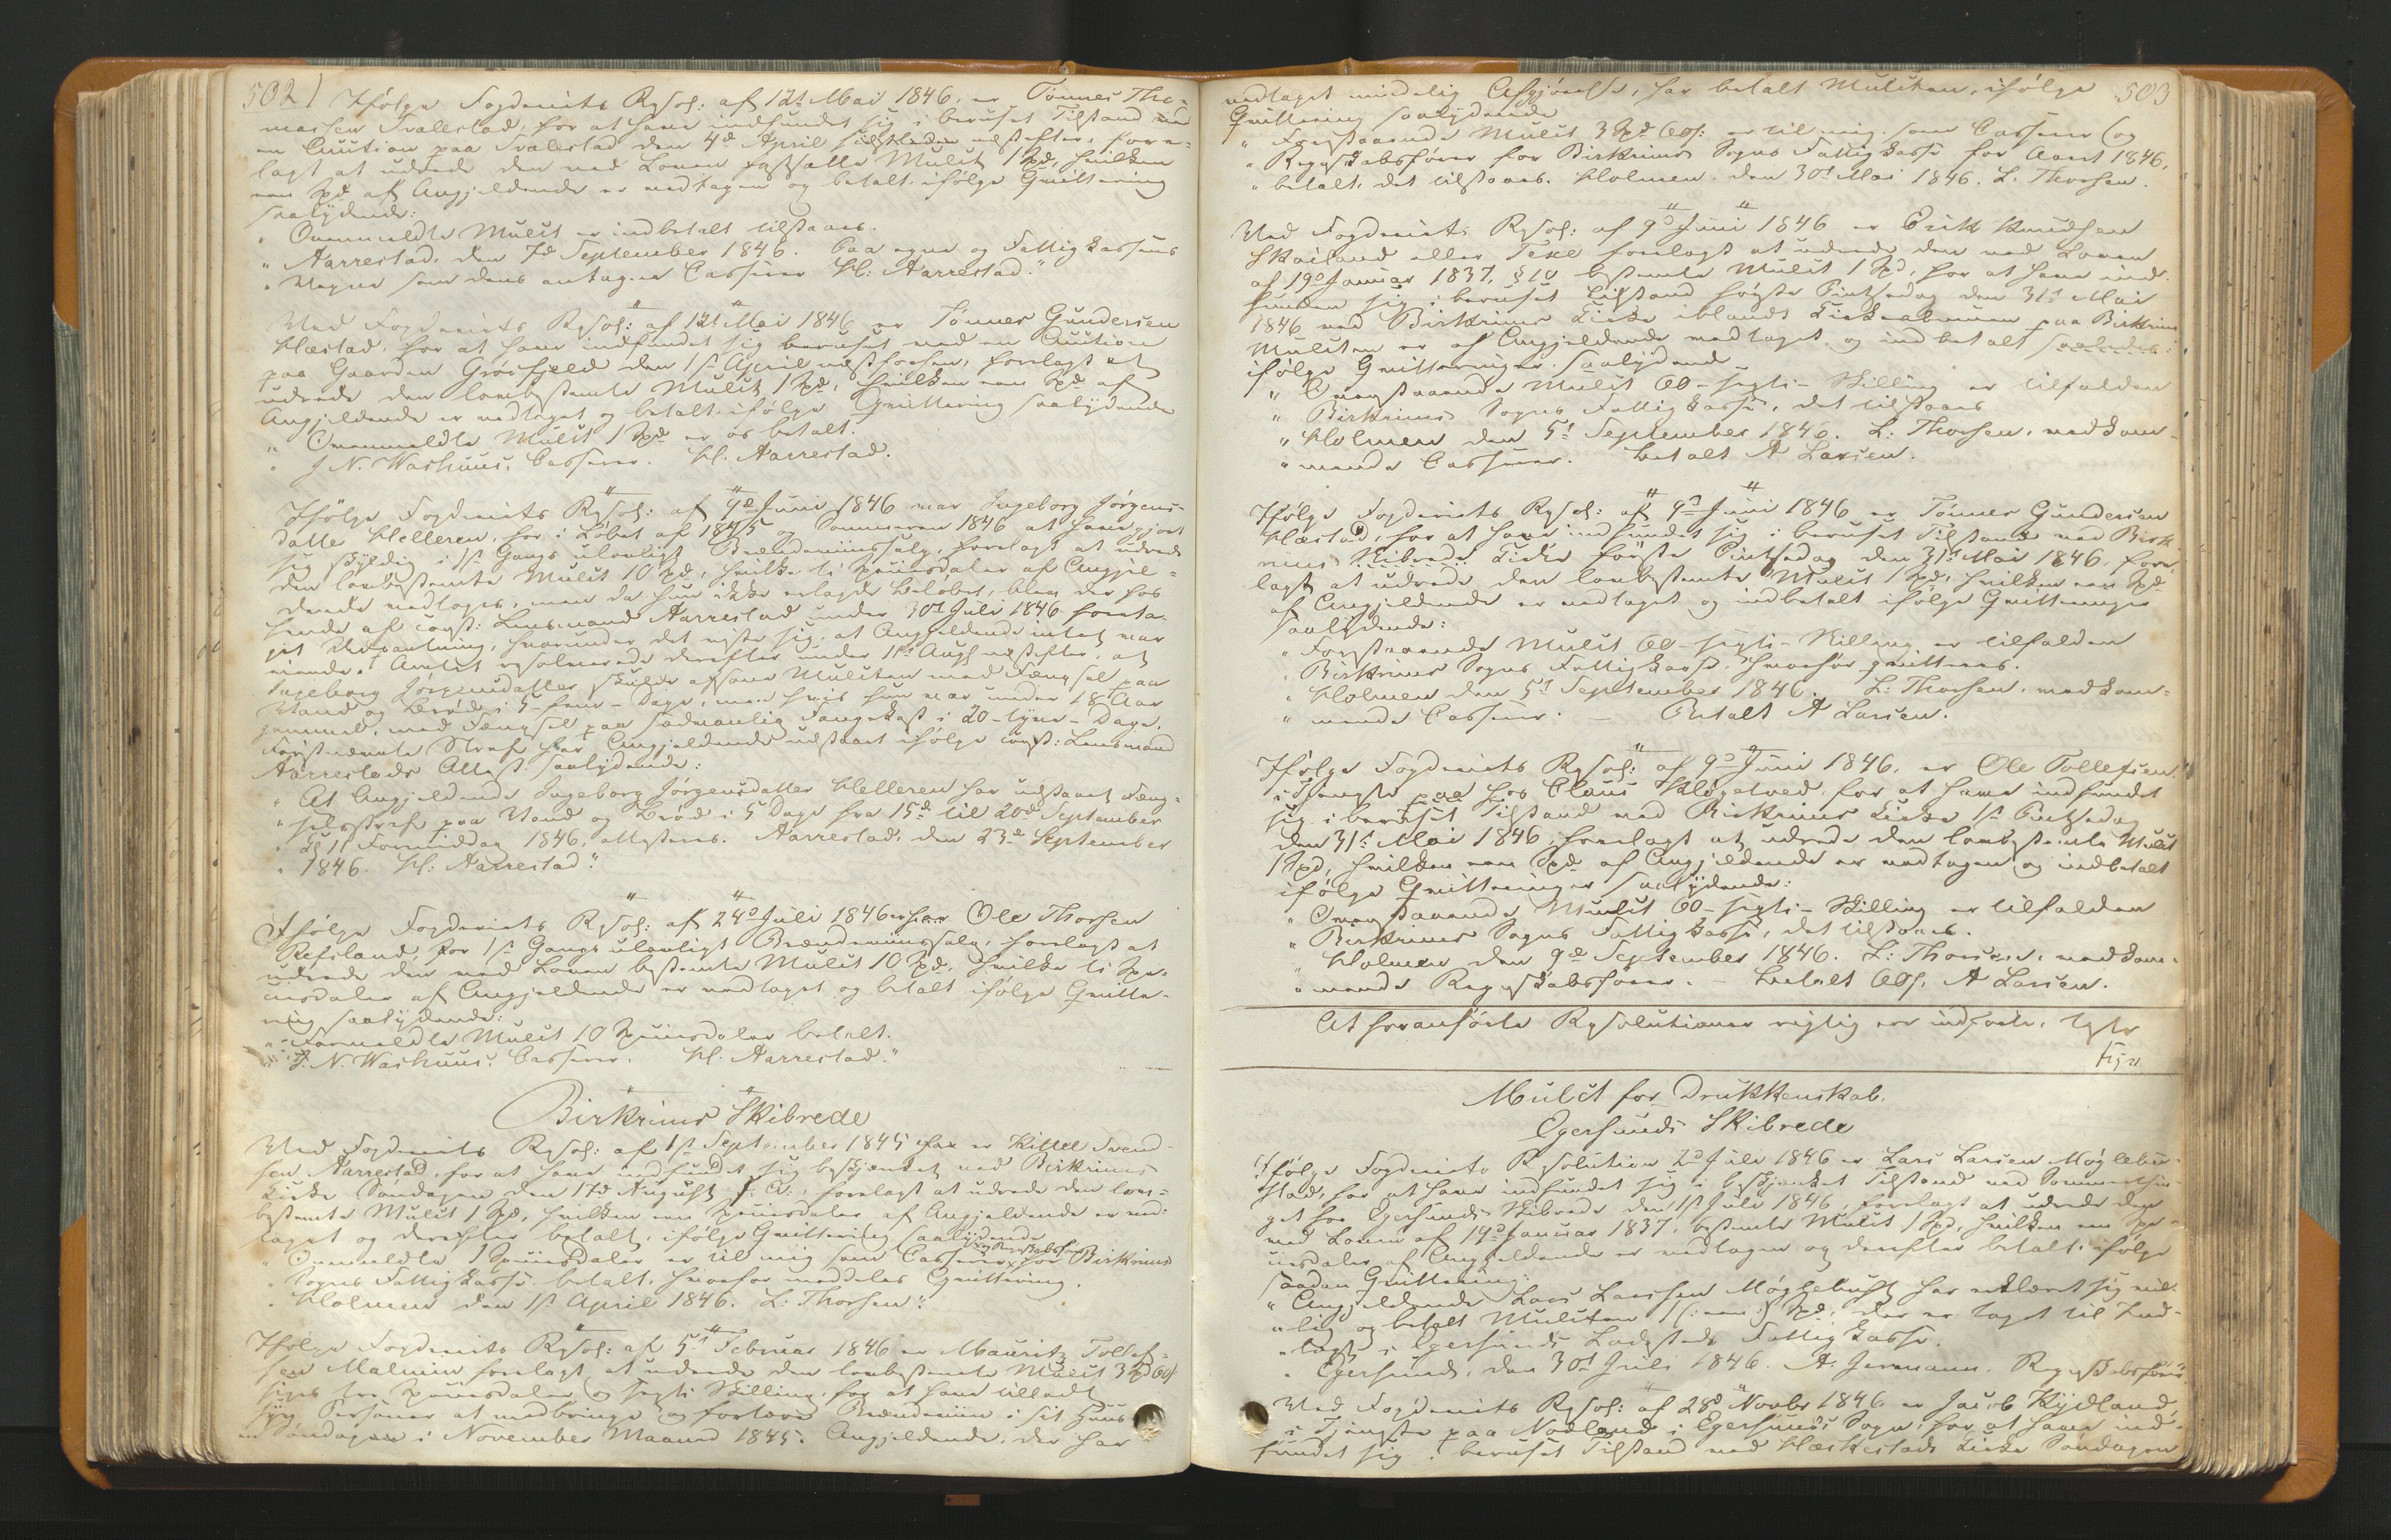 502
Ifølge Fogderiets Resol: af 12t Mai 1846, er Tønnes Tho-
massen Svalestad, for at have indfundet sig i beruset Tilstand ved
en Auction paa Svalestad den 4de April næstefter, fore-
lagt at udrede den ved Loven fastsatte Mulct 1 Spd, hvilken
een Spd af Angjeldende er vedtagen og betalt ifølge Qvittering
saalydende:
" Ovenmeldte Mulct er indbetalt tilstaaes.
" Aarrestad, den 7de September 1846. Paa egne og Fattigkassens
" Vegne som dens antagne Casserer Hl: Aarrestad."
Ved Fogderiets Resol: af 12t Mai 1846 er Tønnes Gundersen
Hæstad, for at have indfundet sig beruset ved en Auction
paa Gaarden Grøsfjeld den 1st April næstforhen, forelagt at
udrede den lovbestemte Mulct 1 Spd, hvilken een Spd af
Angjeldende er vedtaget og betalt ifølge Qvittering saalydende
" Ovenmeldte Mulct 1 Spd er os betalt.
" J. N. Washuus, Casserer. Hl. Aarrestad.
Ifølge Fogderiets Resol: af 9de Juni 1846 var Ingeborg Jørgens-
datter Helleren, for i Løbet af 1845 og Sommeren 1846 at have gjort
sig skyldig i 1st Gangs ulovligt Brændeviinssalg, forelagt at udrede
den lovbestemte Mulct 10 Spd, hvilke ti Speciesdaler af Angjel-
dende vedtoges, men da hun ikke erlagde Beløbet, blev der hos
hende af const: Lensmand Aarrestad under 30t Juli 1846 foreta-
get Udpantning, hvorunder det viste sig, at Angjeldende intet var
eiende. Amtet resolverede derefter under 11te Augst næstefter, at
Ingeborg Jørgensdatter skulde afsone Mulcten med Fængsel paa
Vand og Brød i 5-fem-Dage, men hvis hun var under 18 Aar
gammel, med Fængsel paa sædvanlig Fangekost i 20-tyve-Dage.
Førstnævnte Straf har Angjeldende udstaaet ifølge const: Lensmand
Aarrestads Attest saalydende:
" At Angjeldende Ingeborg Jørgensdatter Helleren har udstaaet Fæng-
" selsstraf paa Vand og Brød i 5 Dage fra 15de til 20de September
" Kl 11 Formiddag 1846, attesteres. Aarrestad, den 23de September
" 1846. Hl: Aarrestad."
Ifølge Fogderiets Resol: af 24de Juli 1846 er Ole Thorsen
Refsland, for 1st Gangs ulovligt Brændeviinssalg, forelagt at
udrede den ved Loven bestemte Mulct 10 Spd, hvilke ti Spe-
ciesdaler af Angjeldende er vedtaget og betalt ifølge Qvitte-
ring saalydende:
" Formeldte Mulct 10 Speciesdaler betalt.
" J. N. Washuus, Casserer. Hl. Aarrestad."
Birkrims Skibrede
Ved Fogderiets Resol: af 1st September 1845 er Kittel Svend-
sen Aarrestad, for at have indfundet sig beskjænket ved Birkrims
Kirke Søndagen den 17de August f. A., forelagt at udrede den lov-
bestemte Mulct 1 Spd, hvilken een Speciesdaler af Angjeldende er ved-
taget og derefter betalt, ifølge Qvittering saalydende
" Ovenmeldte 1 Speciesdaler er til mig som Casserer og Regnskabsfører for Birkrims
" Sogns Fattigkasse betalt, hvorfor meddeles Qvittering.
" Holmen den 1st April 1846. L: Thorsen."
Ifølge Fogderiets Resol: af 5t Februar 1846 er Mauritz Tollef-
sen Malmin forelagt at udrede den lovbestemte Mulct 3 Spd 60 s
siger tre Speciesdaler og sexti Skilling, for at have tilladt
syv Personer at medbringe og fortære Brændeviin i sit Huus
en Søndagen i November Maaned 1845. Angjeldende, der har
503
vedtaget mindelig Afgjørelse, har betalt Mulcten, ifølge
Qvittering saalydende
" Forestaaende Mulct 3 Spd 60 s: er til mig som Casserer og
" Regnskabsfører for Birkrims Sogns Fattigkasse for Aaret 1846,
" betalt, det tilstaaes. Holmen, den 30t Mai 1846. L. Thorsen.
Ved Fogderiets Resol: af 9de Juni 1846 er Erik Knudsen
Skailand eller Texe forelagt at udrede den ved Loven
af 19de Januar 1837, § 10 bestemte Mulct 1 Spd, for at have ind-
funden sig i beruset Tilstand første Pintsedag den 31t Mai
1846 ved Birkrims Kirke iblandt Kirkealmuen paa Birkrim
Mulcten er af Angjeldende vedtaget, og indbetalt saaledes:
ifølge Qvitteringer saalydende
" Omestaaende Mulct 60-sexti-Skilling er tilfalden
" Birkrims Sogns Fattigkasse, det tilstaaes
" Holmen den 5t September 1846. L: Thorsen, vedkom-
" mende Casserer. Betalt A Larsen.
Ifølge Fogderiets Resol: af 9de Juni 1846 er Tønnes Gundersen
Hæstad, for at have indfundet sig i beruset Tilstand ved Birk-
rims Skibrede Kirke første Pintsedag den 31te Mai 1846, fore-
lagt at udrede den lovbestemte Mulct 1 Spd, hvilken een Spd
af Angjeldende er vedtaget og indbetalt ifølge Qvitteringer
saalydende:
" Forestaaende Mulct 60-sexti-Skilling er tilfalden
" Birkrims Sogns Fattigkasse, hvorfor qvitteres.
" Holmen den 5t September 1846. L: Thorsen, vedkom-
" mende Casserer. - Betalt A Larsen.
Ifølge Fogderiets Resol: af 9de Juni 1846, er Ole Tollefsen
i Tjeneste paa hos Claus Kløgetved, for at have indfundet
sig i beruset Tilstand ved Birkrims Kirke 1st Pintsedag
den 31t Mai 1846, forelagt at udrede den lovbestemte Mulct
1 Spd, hvilken een Spd af Angjeldende er vedtagen og indbetalt
ifølge Qvitteringer saalydende:
" Omestaaende Mulct 60-sexti-Skilling er tilfalden
" Birkrims Sogns Fattigkasse, det tilstaaes.
" Holmen den 9de September 1846. L: Thorsen, vedkom-
" mende Regnskabsfører. - Betalt 60 s. A Larsen.
At foranførte Resolutioner rigtig ere indførte,
Mulct for Drukkenskab.
Egersunds Skibrede
Ifølge Fogderiets Resolution 2de Juli 1846 er Lars Larsen Møglebu-
stad, for at have indfundet sig i beskjænket Tilstand ved Sommerthin-
get for Egersunds Skibrede den 1st Juli 1846, forelagt at udrede den
ved Loven af 19de Januar 1837, bestemte Mulct 1 Spd, hvilken een Spe-
ciesdaler af Angjeldende er vedtagen og derefter betalt ifølge
saadan Qvittering:
" Angjeldende Lars Larsen Møglebust har erklæret sig vil-
" lig og betalt Mulcten 1 (: een :) Spd; der er taget til Ind-
" tægt i Egersunds Ladesteds Fattigkasse.
" Egersund, den 30t Juli 1846. A. Jermann. Regnskabsfører.
Ved Fogderiets Resol: af 28de Novbr 1846 er Jacob Kydland
i Tjeneste paa Nodland i Egersunds Sogn, for at have ind-
fundet sig i beruset Tilstand ved Hæskestads Kirke Søndagen